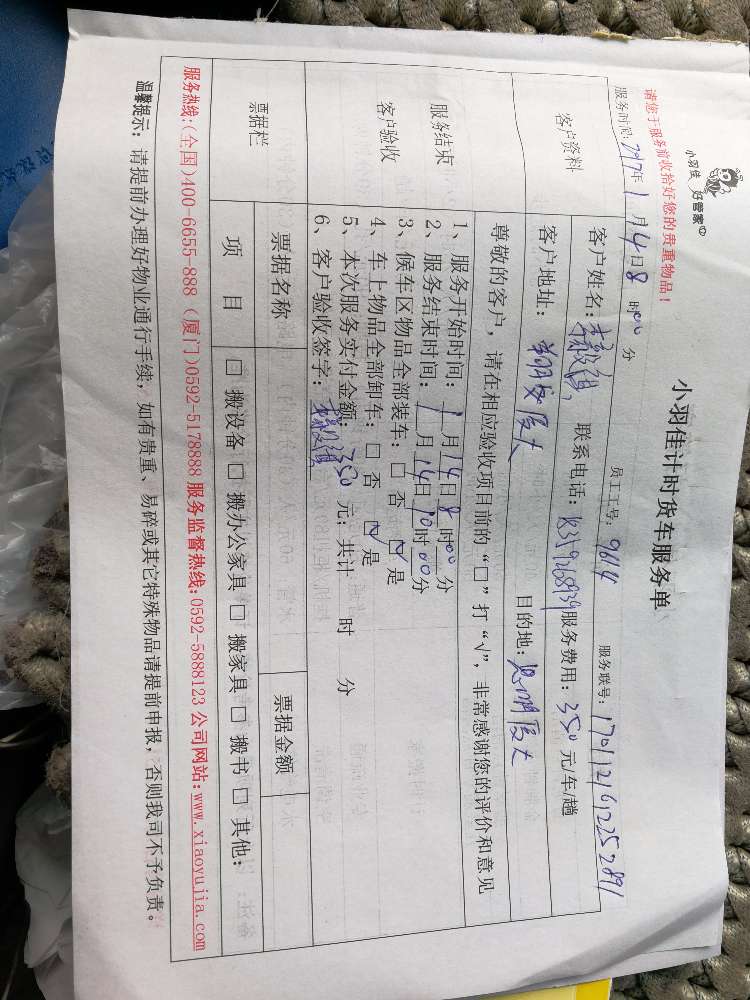 小羽佳 好管家
小羽佳计时货车服务单
请您于服务前收拾好您的贵重物品！
员工工号：9614 服务联号：1701121612252891
服务时间：2017年1月14日8时00分
客户资料
客户姓名： 联系电话： 服务费用：350元/车/趟
客户地址：翔安厦大 目的地：思明厦大
尊敬的客户，请在相应验收项目前的“□”打“√”，非常感谢您的评价和意见
服务结束
客户验收
1、服务开始时间：1月14日8时00分
2、服务结束时间：1月14日10时00分
3、候车区物品全部装车：□ 否 ☑ 是
4、车上物品全部卸车：□ 否 ☑ 是
5、本次服务实付金额：350元；共计 时 分
6、客户验收签字：
票据栏
票据名称 票据金额
项 目 □ 搬设备 □ 搬办公家具 □ 搬家具 □ 搬书 □ 其他：
服务热线：(全国)400-6655-888 (厦门)0592-5178888 服务监督热线：0592-5888123 公司网站：www.xiaoyujia.com
温馨提示：请提前办理好物业通行手续，如有贵重、易碎或其它特殊物品请提前申报，否则我司不予负责。